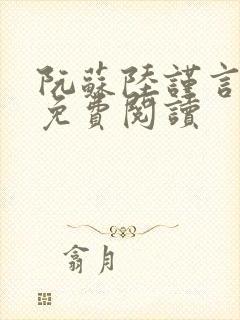 阮蘇陸謹言
免費閱讀
翕月